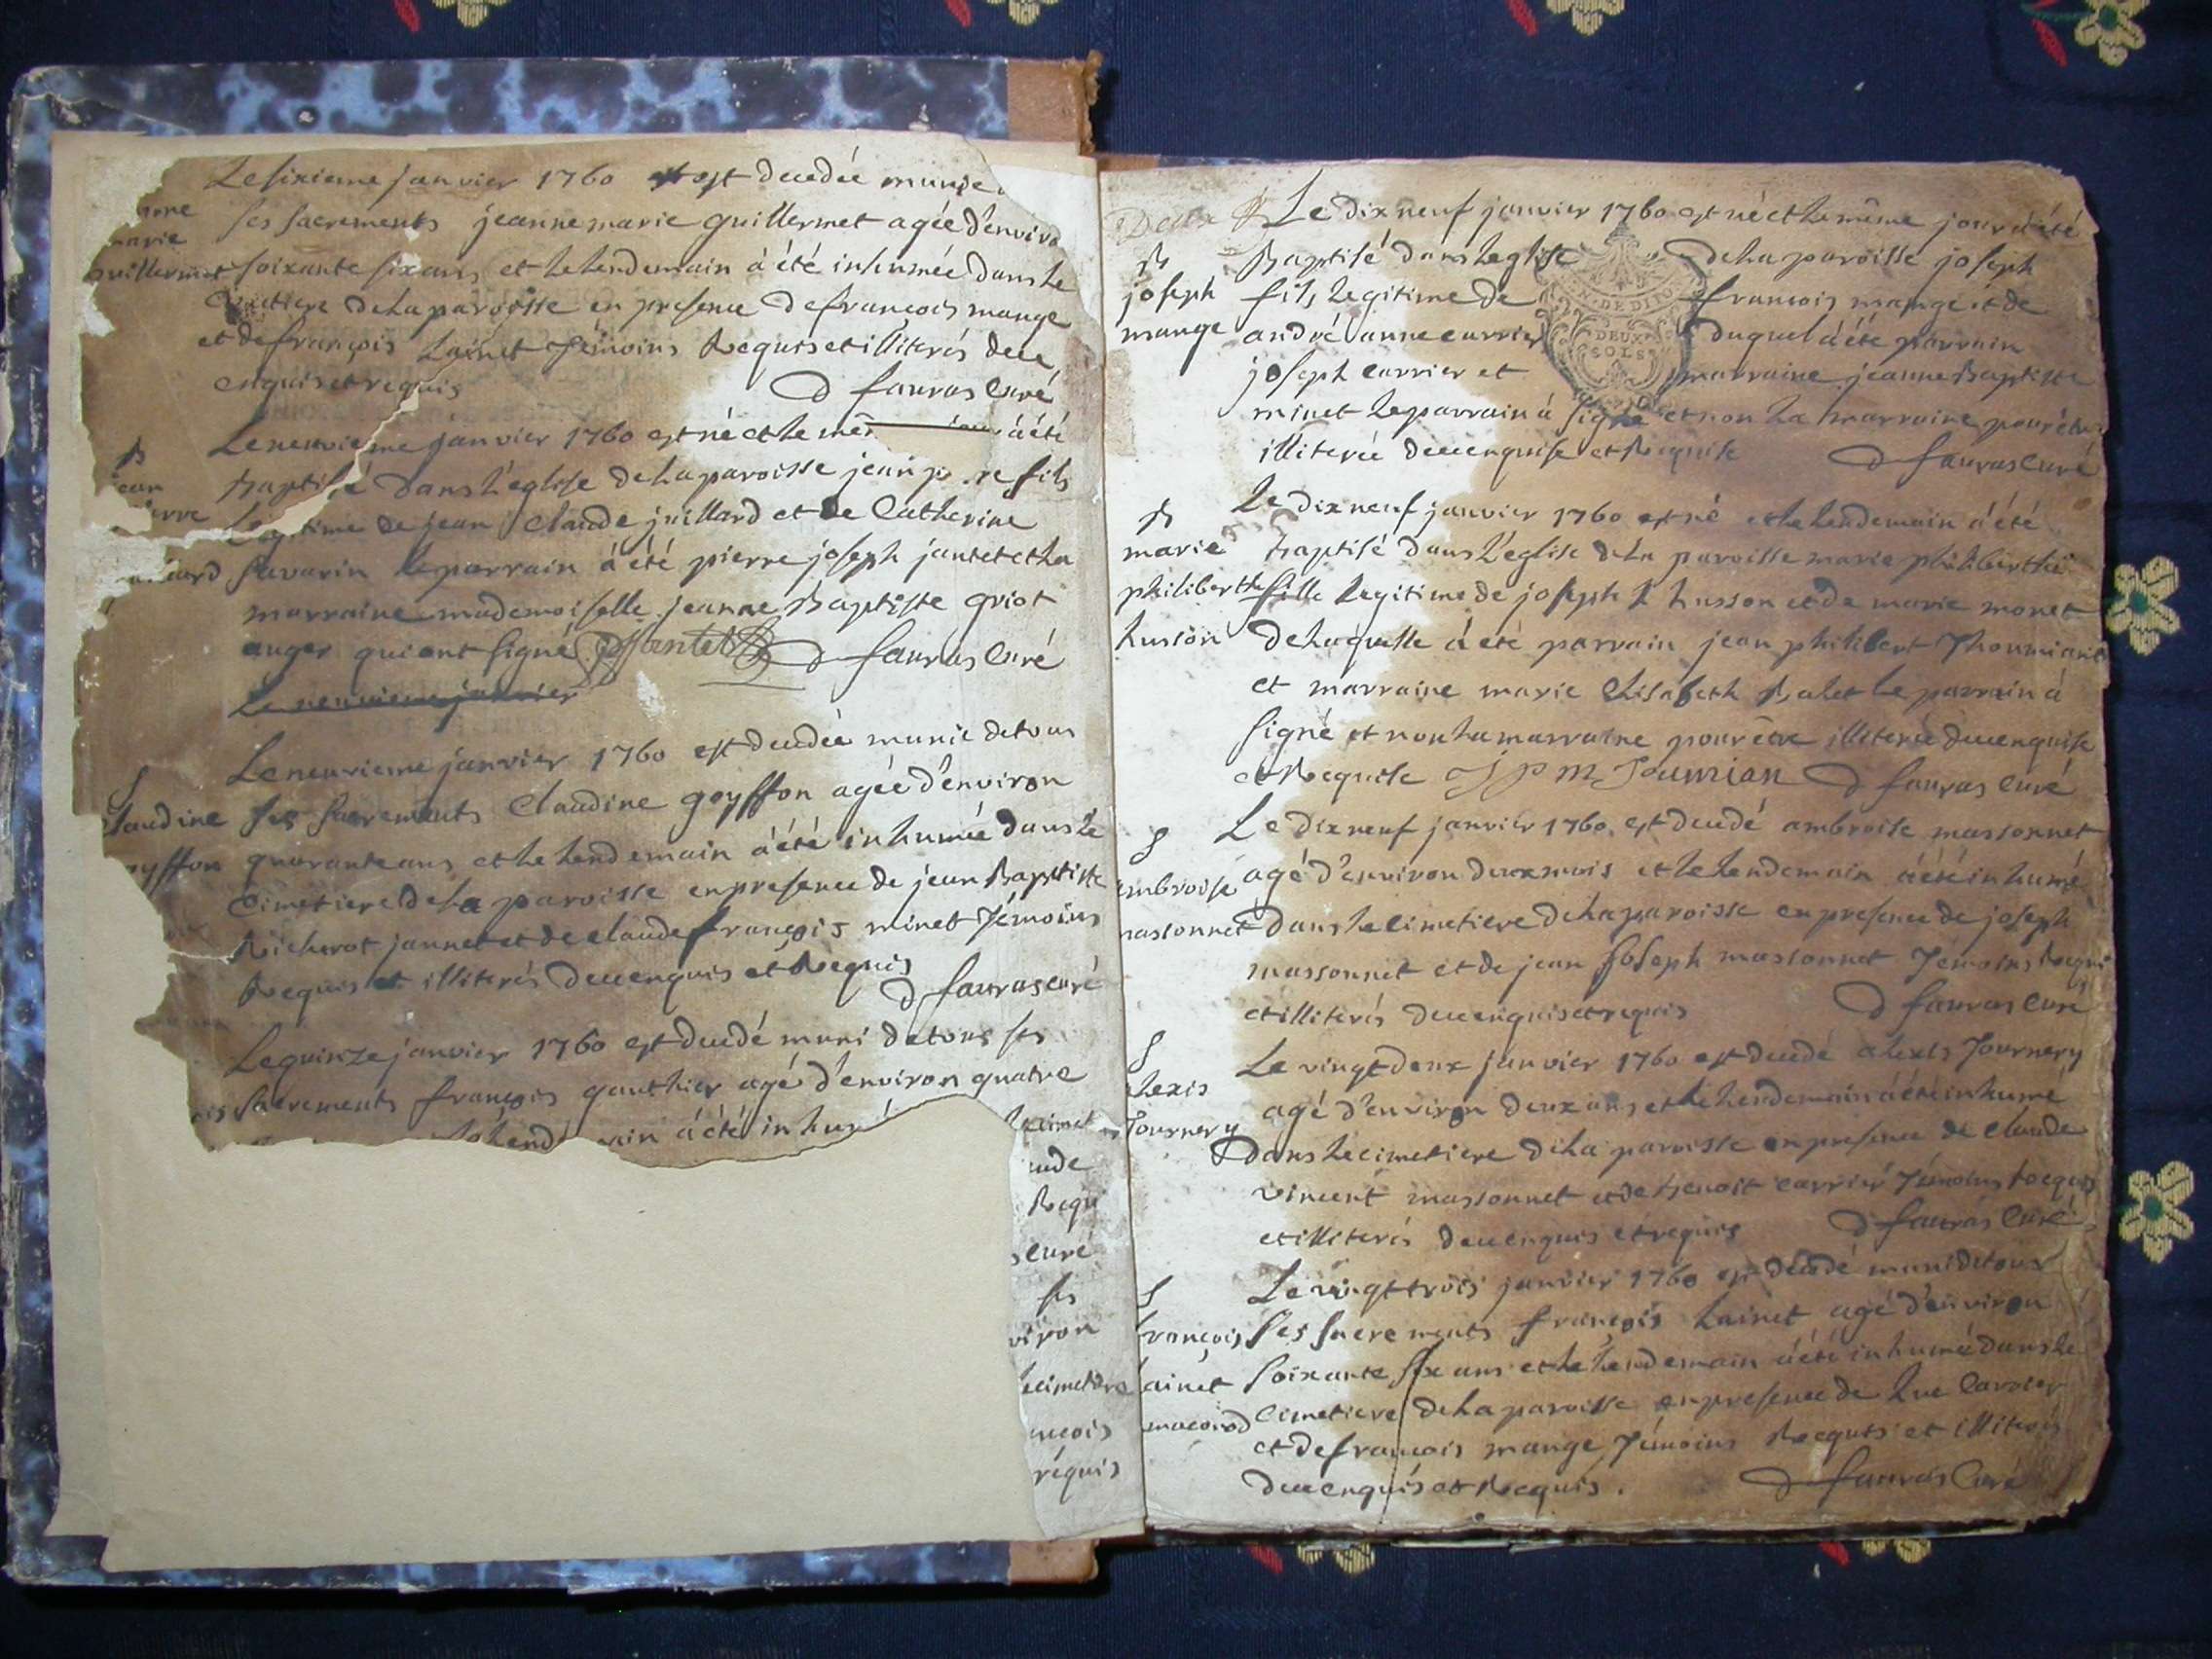 Le sixieme janvier 1760 est decedée munie
ses sacrements jeanne marie guillermet agée d'enviro
marie
guillermet soixante six ans et le lendemain à été inhumée dans le
cimetiere de la paroisse en presence de françois mange
et de françois Lainet Témoins Requis et illiterés de ce
enquis et requis
D fauras Curé
Le neuvieme janvier 1760 est né et le mêm jour à été
B
Baptisé dans l'église de la paroisse jean p re fils
ean
ierre Legitime de jean Claude juillard et de Catherine
ard savarin le parrain à été pierre joseph jantet et la
marraine mademoiselle jeanne Baptiste griot
auger qui ont signé Jantet D fauras Curé
Le neuvieme janvier
Le neuvieme janvier 1760 est decedée munie de tous
S
laudine ses sacrements Claudine goyffon agée d'environ
yffon quarante ans et le lendemain à été inhumée dans le
Cimetiere de la paroisse en presence de jean Baptiste
Richerot jannet et de claude françois minet Témoins
Requis et illiterés de ce enquis et Requis
D fauras curé
Le quinze janvier 1760 est decedé muni de tous ses
ois sacrements françois gauthier agé d'environ quatre
lend ain à été inhumé
lecimet
ude
Requi
curé
ses
viron
lecimetiere
ançois
réquis
Deux
Le dix neuf janvier 1760 est né et le même jour à été
B Baptisé dans leglise de la paroisse joseph
N. DE DITO
joseph fils legitime de françois mange et de
mange andré anne carrier duquel à été parrain
DEUX
SOLS
joseph carrier et marraine jeanne Baptiste
minet le parrain à signé et non la marraine pour être
illiterée de ce enquise et Requise D fauras curé
Le dix neuf janvier 1760 est né et le lendemain à été
B
marie Baptisé dans l'église de la paroisse marie philiberthe
philiberthe fille legitime de joseph husson et de marie monet
husson de laquelle à été parrain jean philibert Thoumian
et marraine marie Elisabeth Balet le parrain à
signé et non la marraine pour être illiterée de ce enquise
et Requise J p m Toumian D fauras curé
Le dix neuf janvier 1760 est decedé ambroise massonnet
S
ambroise agé d'environ deux mois et le lendemain à été inhumé
massonnet dans le cimetiere de la paroisse en presence de joseph
massonnet et de jean joseph massonnet Témoins Requi
et illiterés de ce enquis et requis D fauras Curé
S
Le vingt deux janvier 1760 est decedé alexis Tournery
lexis agé d'environ deux ans et le lendemain à été inhumé
Tournery dans le cimetiere de la paroisse en presence de Claude
vincent massonnet et de Benoit carrier Témoins Requis
et illiterés de ce enquis et requis D fauras Curé
Le vingt trois janvier 1760 est decedé muni de tous
S
françois ses sacrements françois Lainet agé d'environ
ainet soixante six ans et le lendemain à été inhumé dans le
cimetiere de la paroisse en presence de Luc Carrier
et de françois mange Témoins Requis et illiterés
de ce enquis et Requis. D fauras Curé